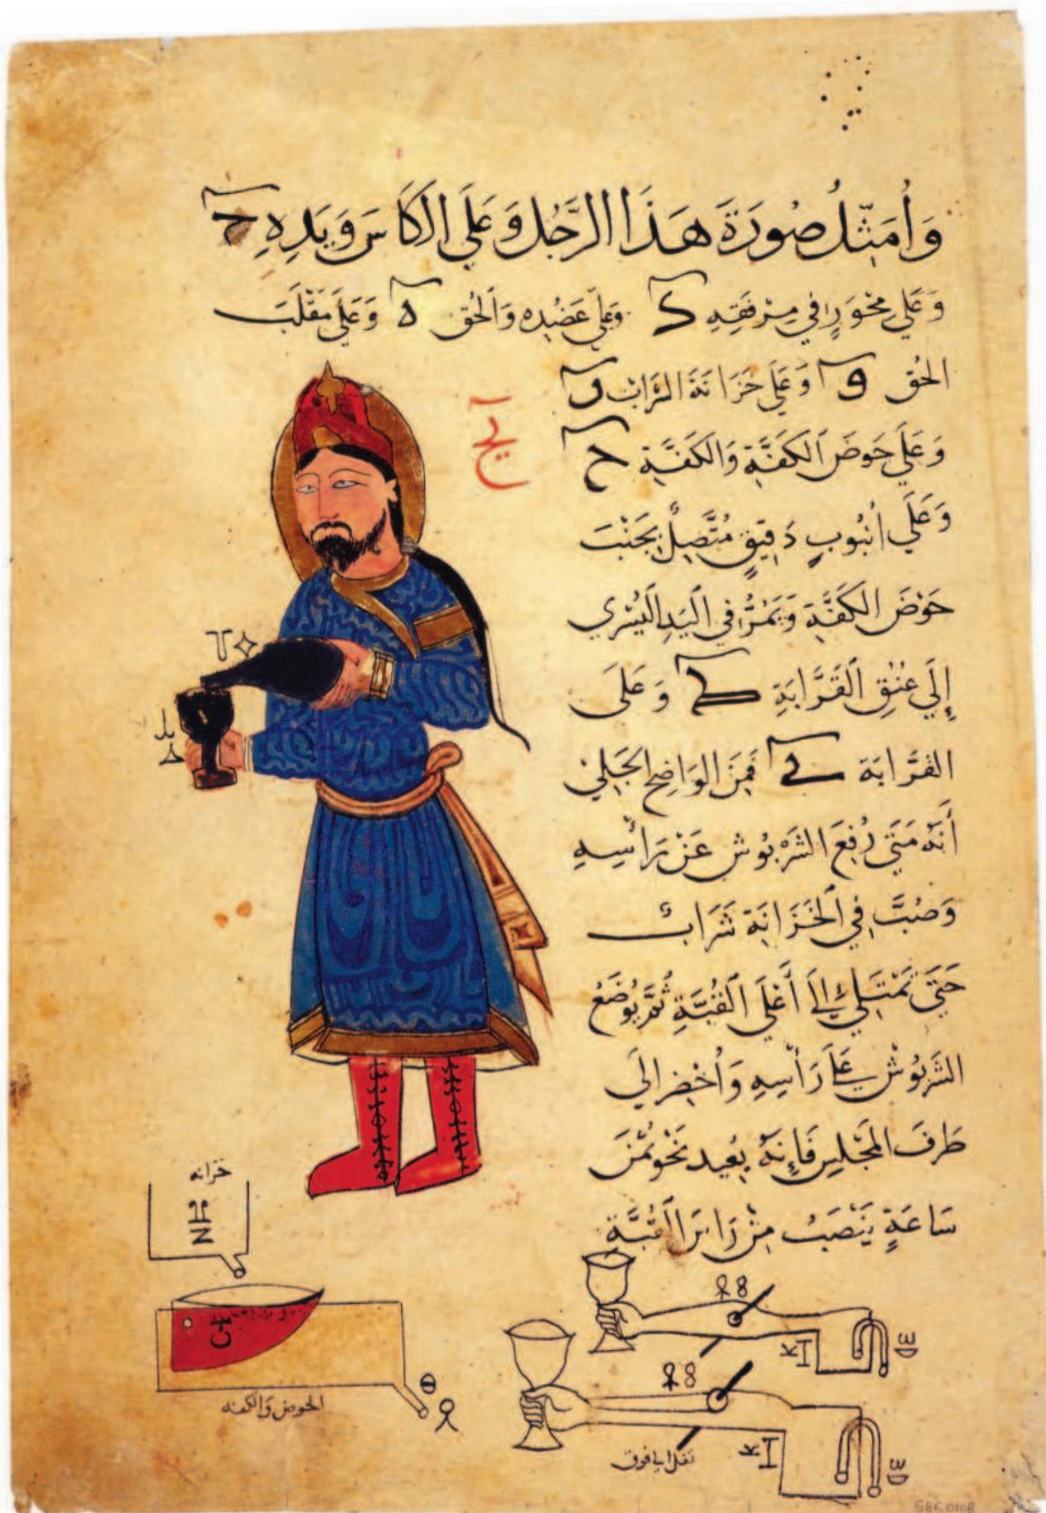 وَأُمَثِّلُ صُورَةَ هَذَا الرَّجُلِ وَعَلَي الكَاسِ وَيَدِهِ ح
وَعَلَي مِحْوَرٍ فِي مِرْفَقِهِ د وَعَلَي عَضُدِهِ وَالحُقِ ه وَعَلَي مَقْلَبَ
الحُقِ و وَعَلَي خَزَانَةَ الشَّرَابِ ز
وَعَلَي حَوضَ الكَفَّةِ وَالكَفَّةِ ح
وَعَلَي انْبُوبٍ دَقِيقٍ مُتَّصِلٍ بِجَنْبَ
حَوْضَ الكَفَّةِ وَيَمُرُّ فِي اليَدِ اليُسْرِي
إِلَي عُنُقِ القَرَّابَةِ وَعَلَى
القَرَّابَة فَمِنَ الوَاضِحِ الجَلِيِّ
أَنَّهُ مَتَي رُفِعَ الشَّرْبُوش عَنْ رَأْسِهِ
وَصُبَّ فِي الخَزَانَةِ شَرَاب
حَتَّي تَمْتَلِئ إِلَي أَعْلَي القُبَّةِ ثُمَّ يُوضَعُ
الشَّرْبُوشُ عَلَي رَأسِهِ وَأُحْضِرَ الَي
طَرَفَ المَجْلِسِ فَإِنَّهُ بِعِيد نَحْوِ ثُمْنَ
سَاعَةٍ يَنْصَبُ مِنْ القُبَّةِ
خزانه
الحوض والكفه
SBC.0108